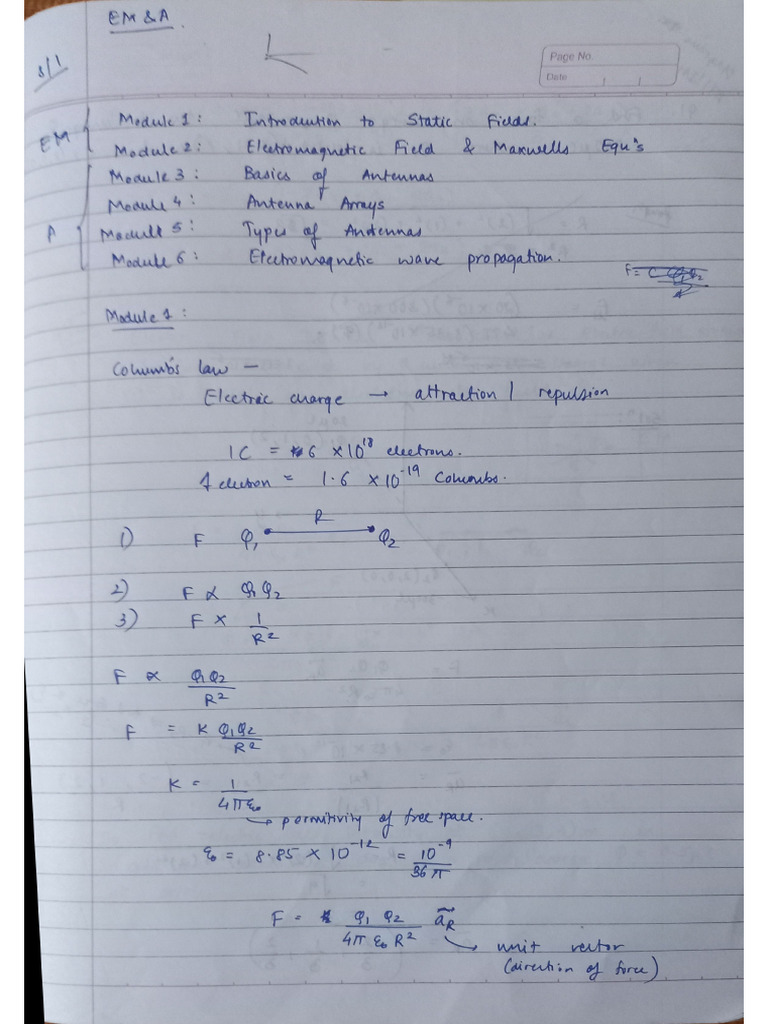 EM & A.
8/1
Page No.
Date
EM
Module 1: Introduction to Static Fields.
Module 2: Electromagnetic Field & Maxwells Equ's
A
Module 3: Basics of Antennas
Module 4: Antenna Arrays
Module 5: Types of Antennas
Module 6: Electromagnetic wave propagation.
Module 1:
Columb's law —
Electric charge → attraction / repulsion
1C = 6 × 10^18 electrons.
1 electron = 1.6 × 10^-19 Columbs.
1) F Q₁ R Q₂
2) F ∝ Q₁Q₂
3) F ∝ 1/R²
F ∝ Q₁Q₂/R²
F = K Q₁Q₂/R²
K = 1/4πε₀
→ permitivity of free space.
ε₀ = 8.85 × 10^-12 = 10^-9/36π
F = Q₁ Q₂/4π ε₀ R² a_R
→ unit vector
(direction of force)